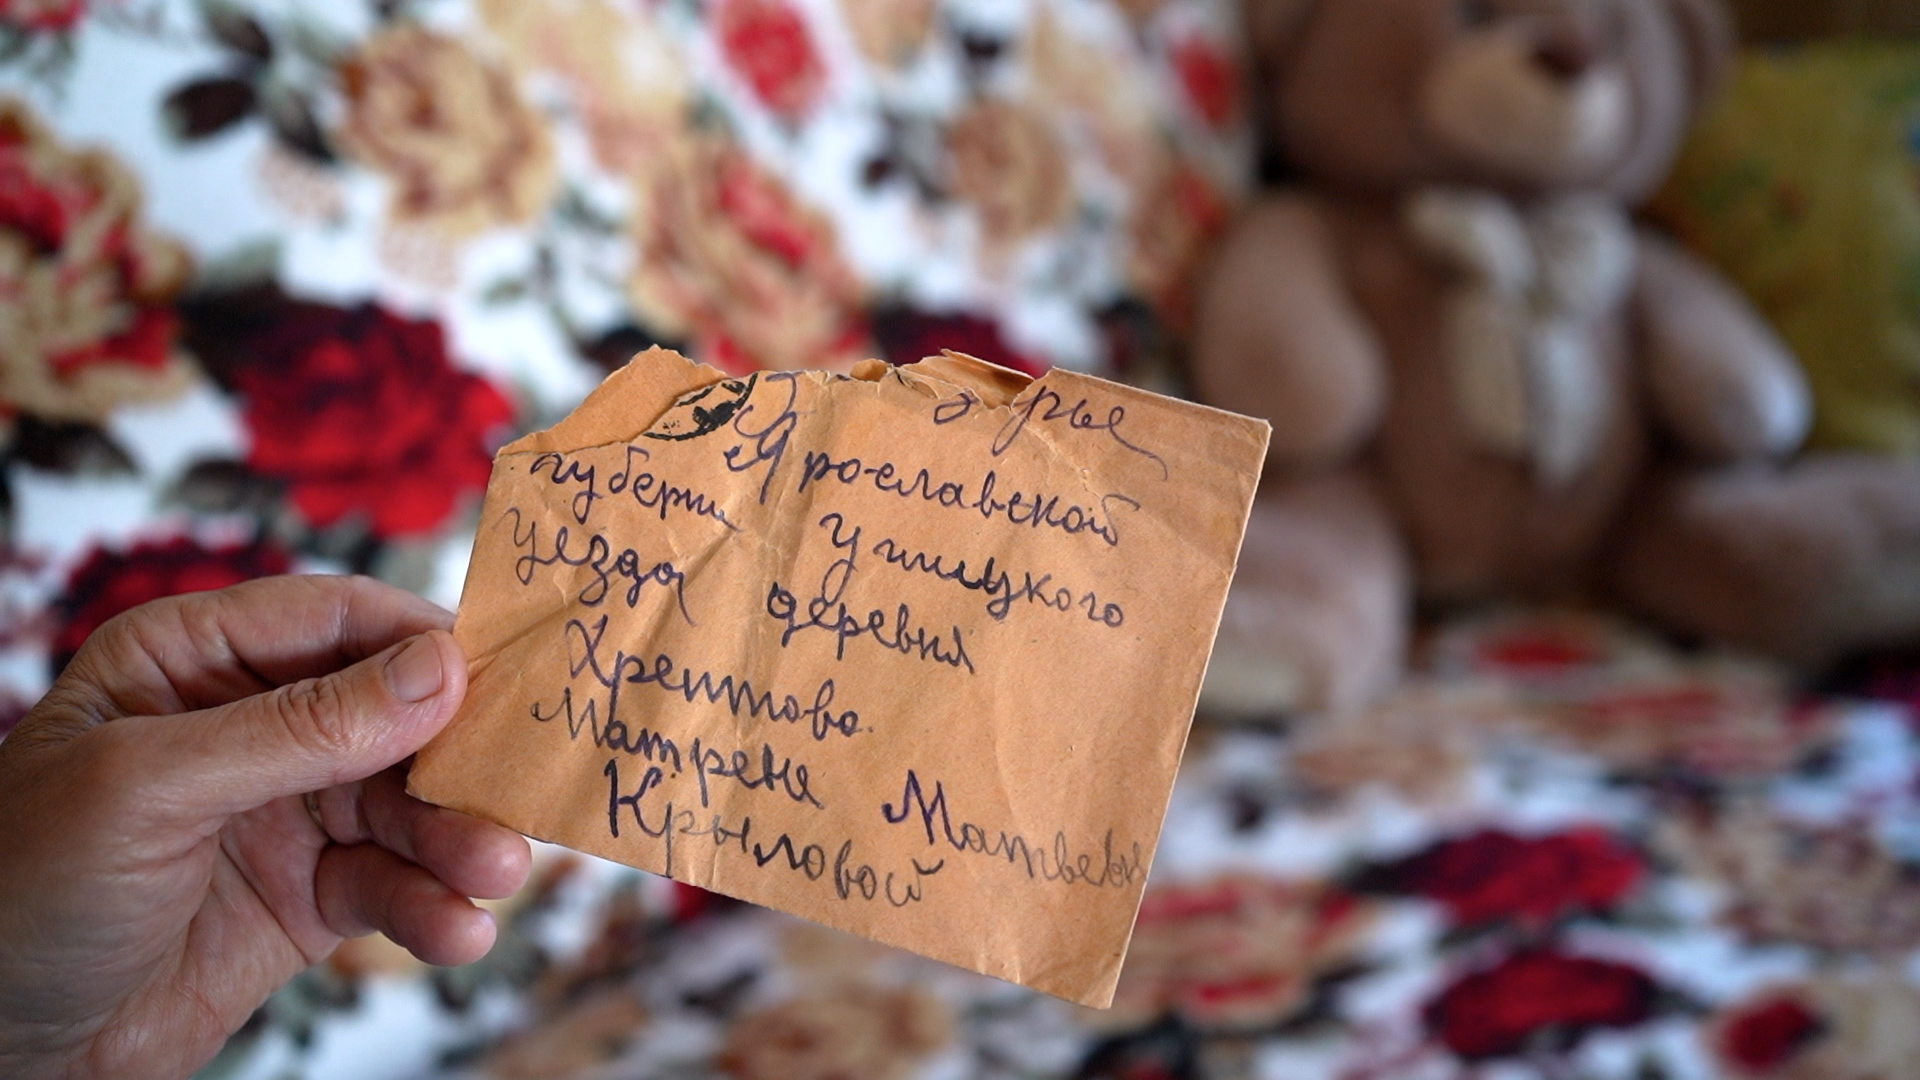 Ярославской
губерни Углицкого
Уезда деревня
Хрептово.
Матрене Матвевн
Крыловой